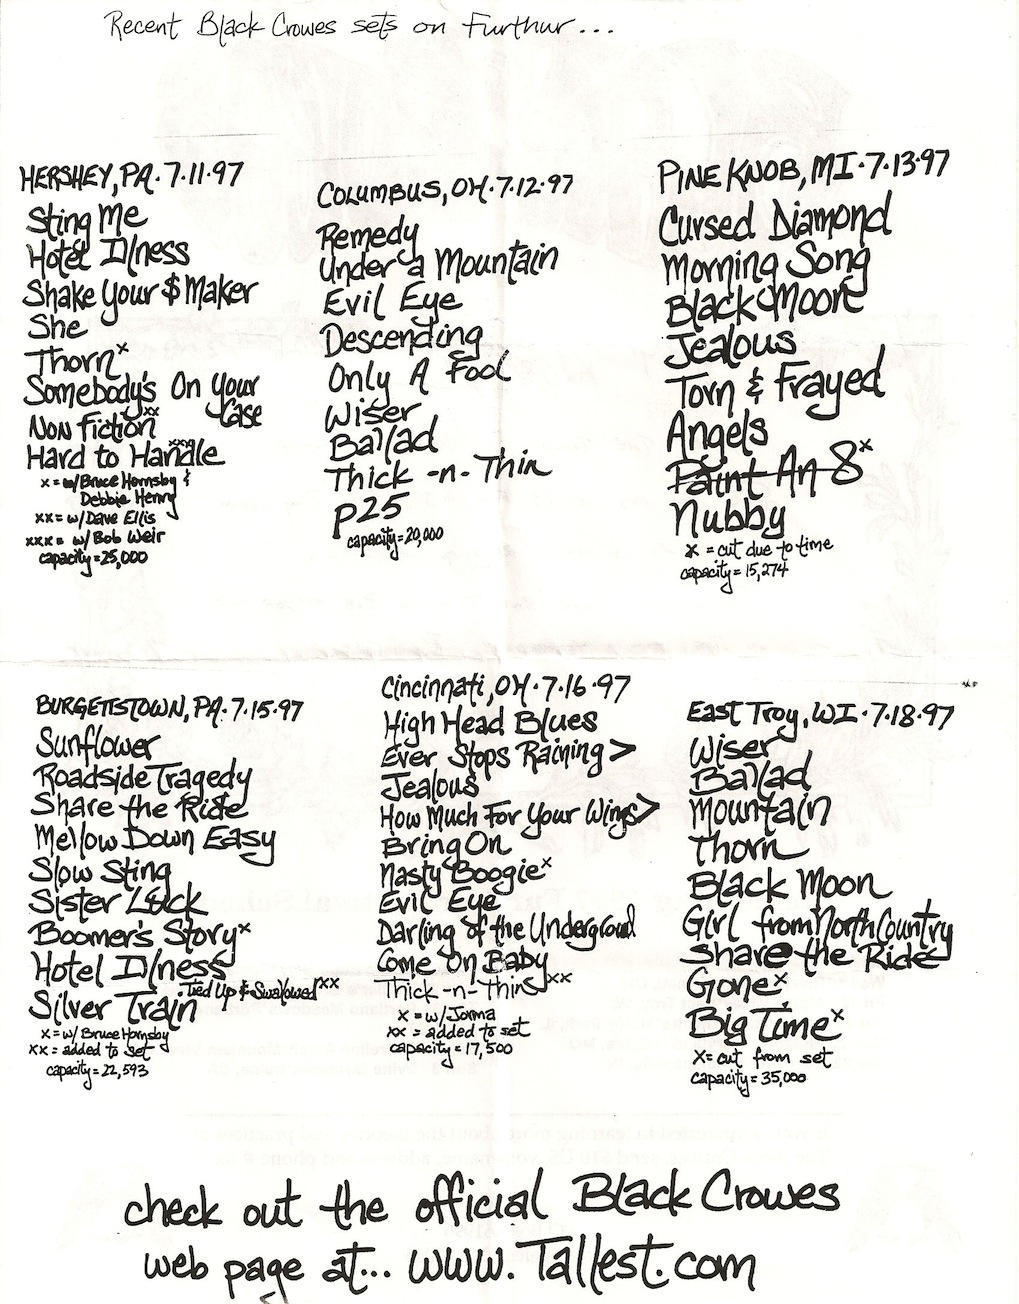 Recent Black Crowes sets on Furthur...
HERSHEY, PA. 7.11.97
Sting Me
Hotel Illness
Shake Your $ Maker
She
Thorn x
Somebody's On Your
Case
Non Fiction xx
Hard to Handle xxx
x = w/Bruce Hornsby &
Debbie Henry
xx = w/Dave Ellis
xxx = w/ Bob Weir
capacity = 25,000
COLUMBUS, OH. 7.12.97
Remedy
Under a Mountain
Evil Eye
Descending
Only A Fool
Wiser
Ballad
Thick -n- Thin
P25
capacity = 20,000
PINE KNOB, MI. 7.13.97
Cursed Diamond
Morning Song
Black Moon
Jealous
Torn & Frayed
Angels
Paint An 8 x
Nubby
x = cut due to time
capacity = 15,274
BURGETTSTOWN, PA. 7.15.97
Sunflower
Roadside Tragedy
Share the Ride
Mellow Down Easy
Slow Sting
Sister Luck
Boomer's Story x
Hotel Illness
Tied Up & Swallowed xx
Silver Train
x = w/ Bruce Hornsby
xx = added to set
capacity = 22,593
Cincinnati, OH. 7.16.97
High Head Blues
Ever Stops Raining >
Jealous
How Much For Your Wings >
Bring On
Nasty Boogie x
Evil Eye
Darling of the Underground
Come On Baby
Thick -n- Thin xx
x = w/ Jorma
xx = added to set
capacity = 17,500
East Troy, WI. 7.18.97
Wiser
Ballad
Mountain
Thorn
Black Moon
Girl from North Country
Share the Ride
Gone x
Big Time x
x = cut from set
capacity = 35,000
check out the official Black Crowes
web page at... www.Tallest.com